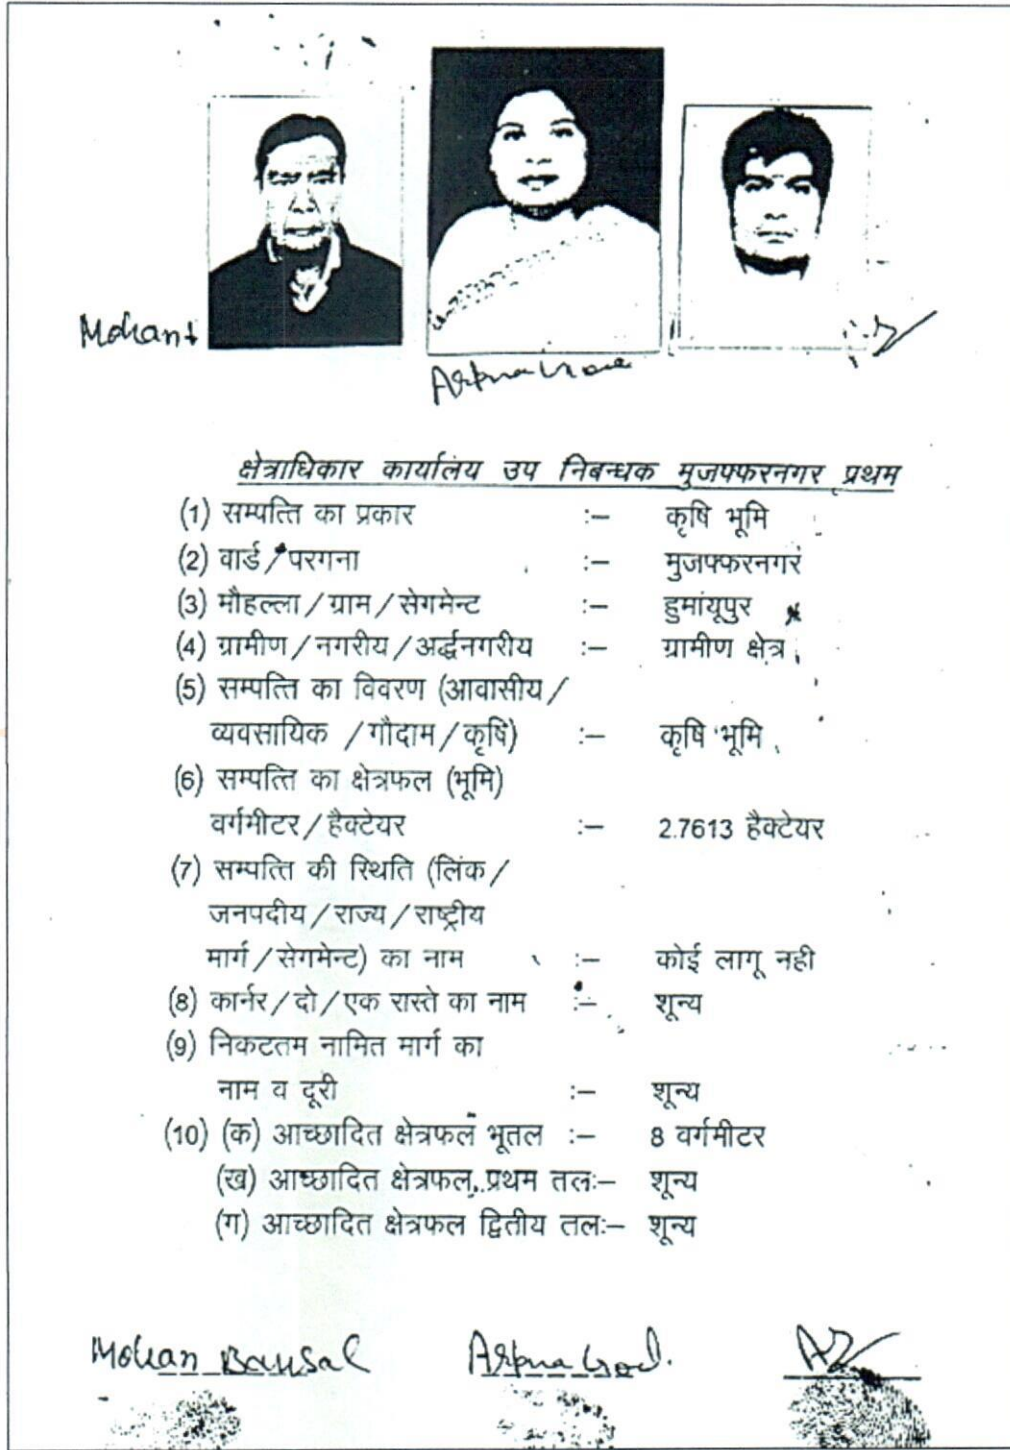 Mohan
Arpna Goel
क्षेत्राधिकार कार्यालय उप निबन्धक मुजफ्फरनगर प्रथम
(1) सम्पत्ति का प्रकार :– कृषि भूमि
(2) वार्ड/परगना :– मुजफ्फरनगर
(3) मौहल्ला/ग्राम/सेगमेन्ट :– हुमांयूपुर
(4) ग्रामीण/नगरीय/अर्द्धनगरीय :– ग्रामीण क्षेत्र
(5) सम्पत्ति का विवरण (आवासीय/
व्यवसायिक /गौदाम/कृषि) :– कृषि भूमि
(6) सम्पत्ति का क्षेत्रफल (भूमि)
वर्गमीटर/हैक्टेयर :– 2.7613 हैक्टेयर
(7) सम्पत्ति की स्थिति (लिंक/
जनपदीय/राज्य/राष्ट्रीय
मार्ग/सेगमेन्ट) का नाम :– कोई लागू नही
(8) कार्नर/दो/एक रास्ते का नाम :– शून्य
(9) निकटतम नामित मार्ग का
नाम व दूरी :– शून्य
(10) (क) आच्छादित क्षेत्रफल भूतल :– 8 वर्गमीटर
(ख) आच्छादित क्षेत्रफल प्रथम तलः– शून्य
(ग) आच्छादित क्षेत्रफल द्वितीय तलः– शून्य
Mohan Bansal Arpna Goel